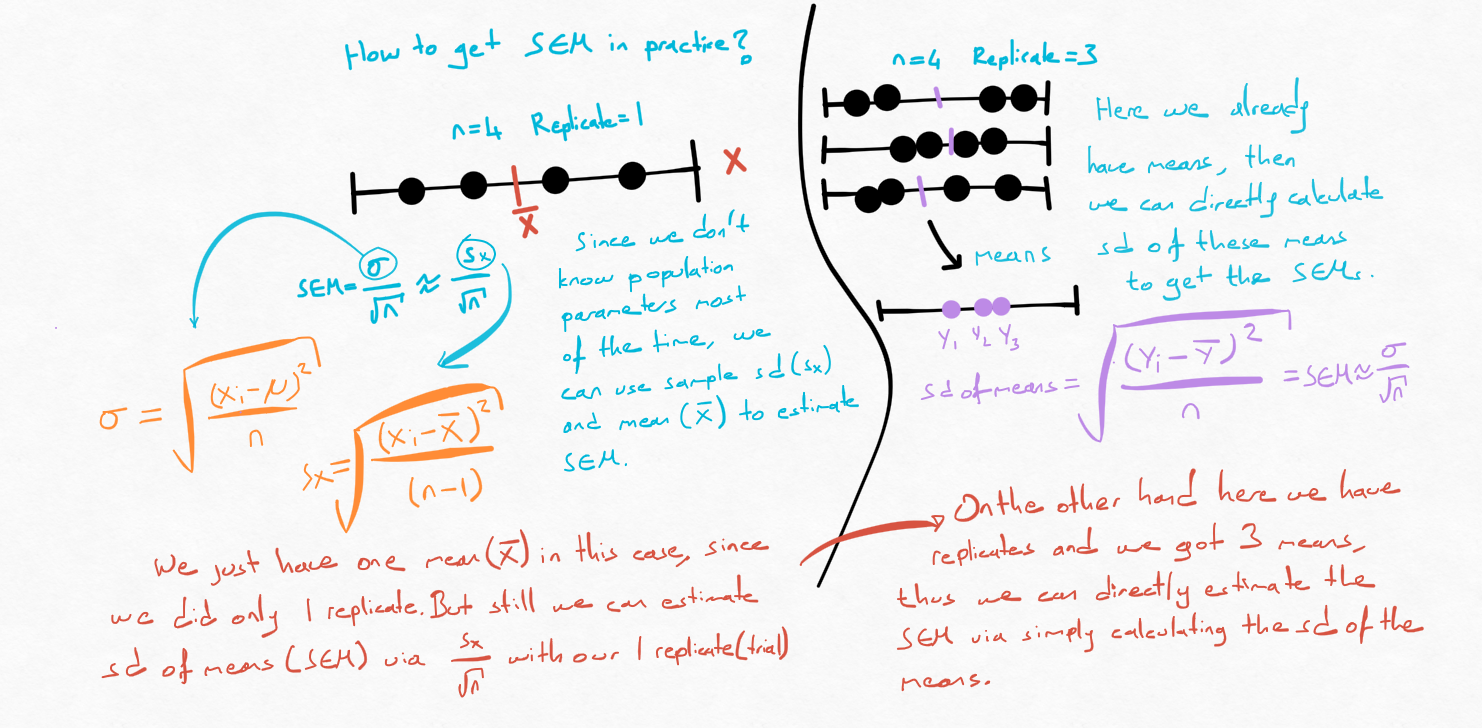 How to get SEM in practice?
n=4 Replicate=1
X
X̅
SEM= σ/√n ≈ sx/√n
Since we don't
know population
parameters most
of the time, we
can use sample sd (sx)
and mean (X̅) to estimate
SEM.
σ = √((xi-μ)²/n)
sx= √((xi-X̅)²/(n-1))
We just have one mean (X̅) in this case, since
we did only 1 replicate. But still we can estimate
sd of means (SEM) via sx/√n with our 1 replicate(trial)
n=4 Replicate=3
Here we already
have means, then
we can directly calculate
sd of these means
to get the SEM.
means
Y1 Y2 Y3
sd of means = √((Yi-Y̅)²/n) = SEM ≈ σ/√n
On the other hand here we have
replicates and we got 3 means,
thus we can directly estimate the
SEM via simply calculating the sd of the
means.